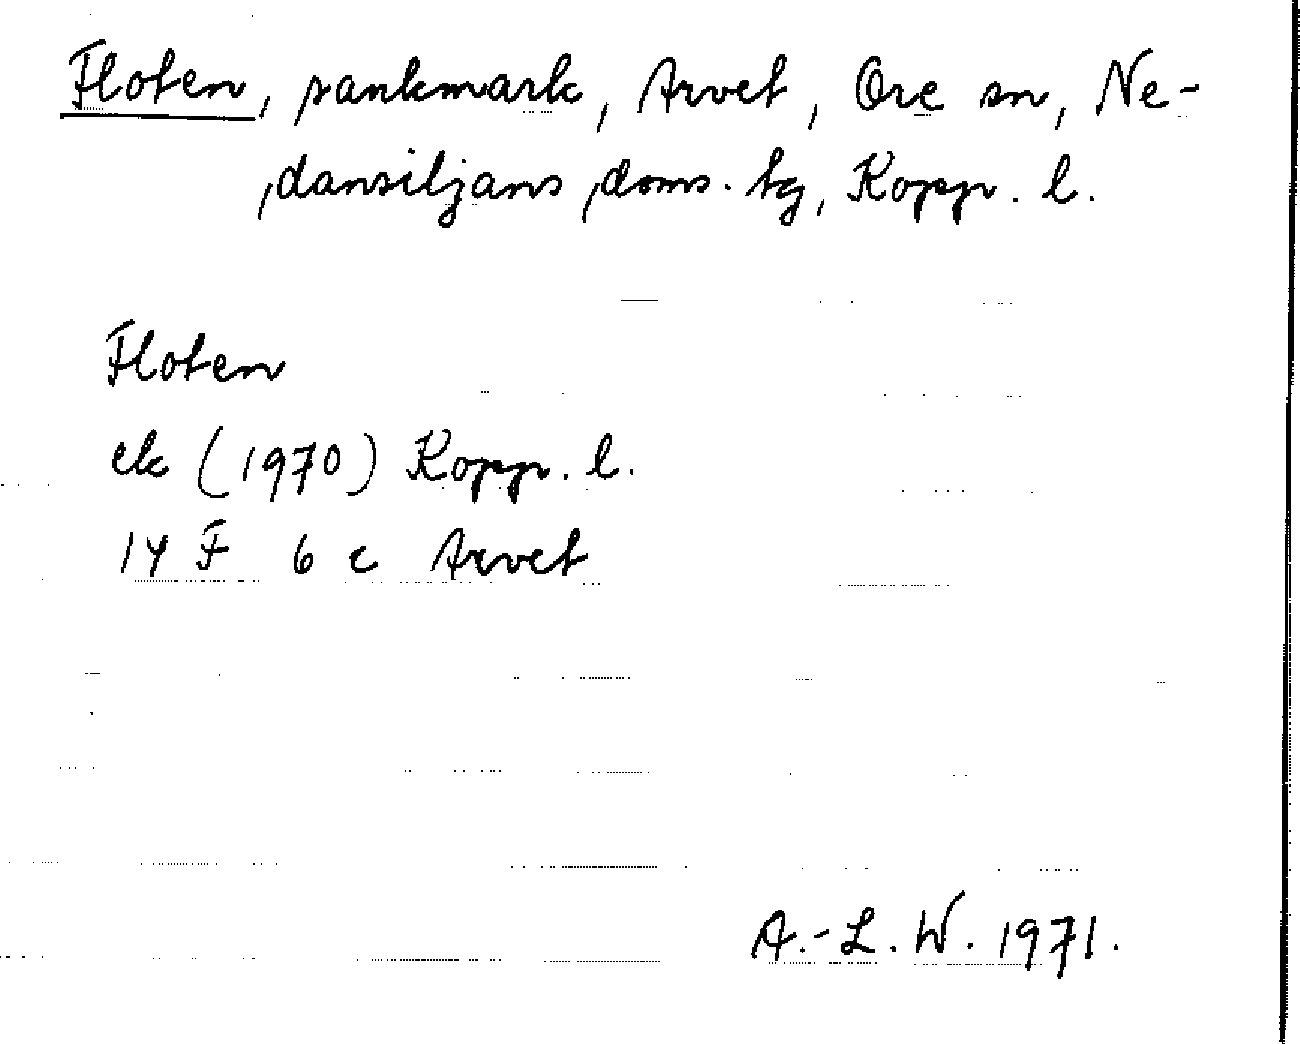 Floten, sankmark, Arvet, Ore sn, Ne-
dansiljans doms. tg, Kopp. l.
Floten
ek (1970) Kopp. l.
14 F 6 c Arvet
A.-L. W. 1971.